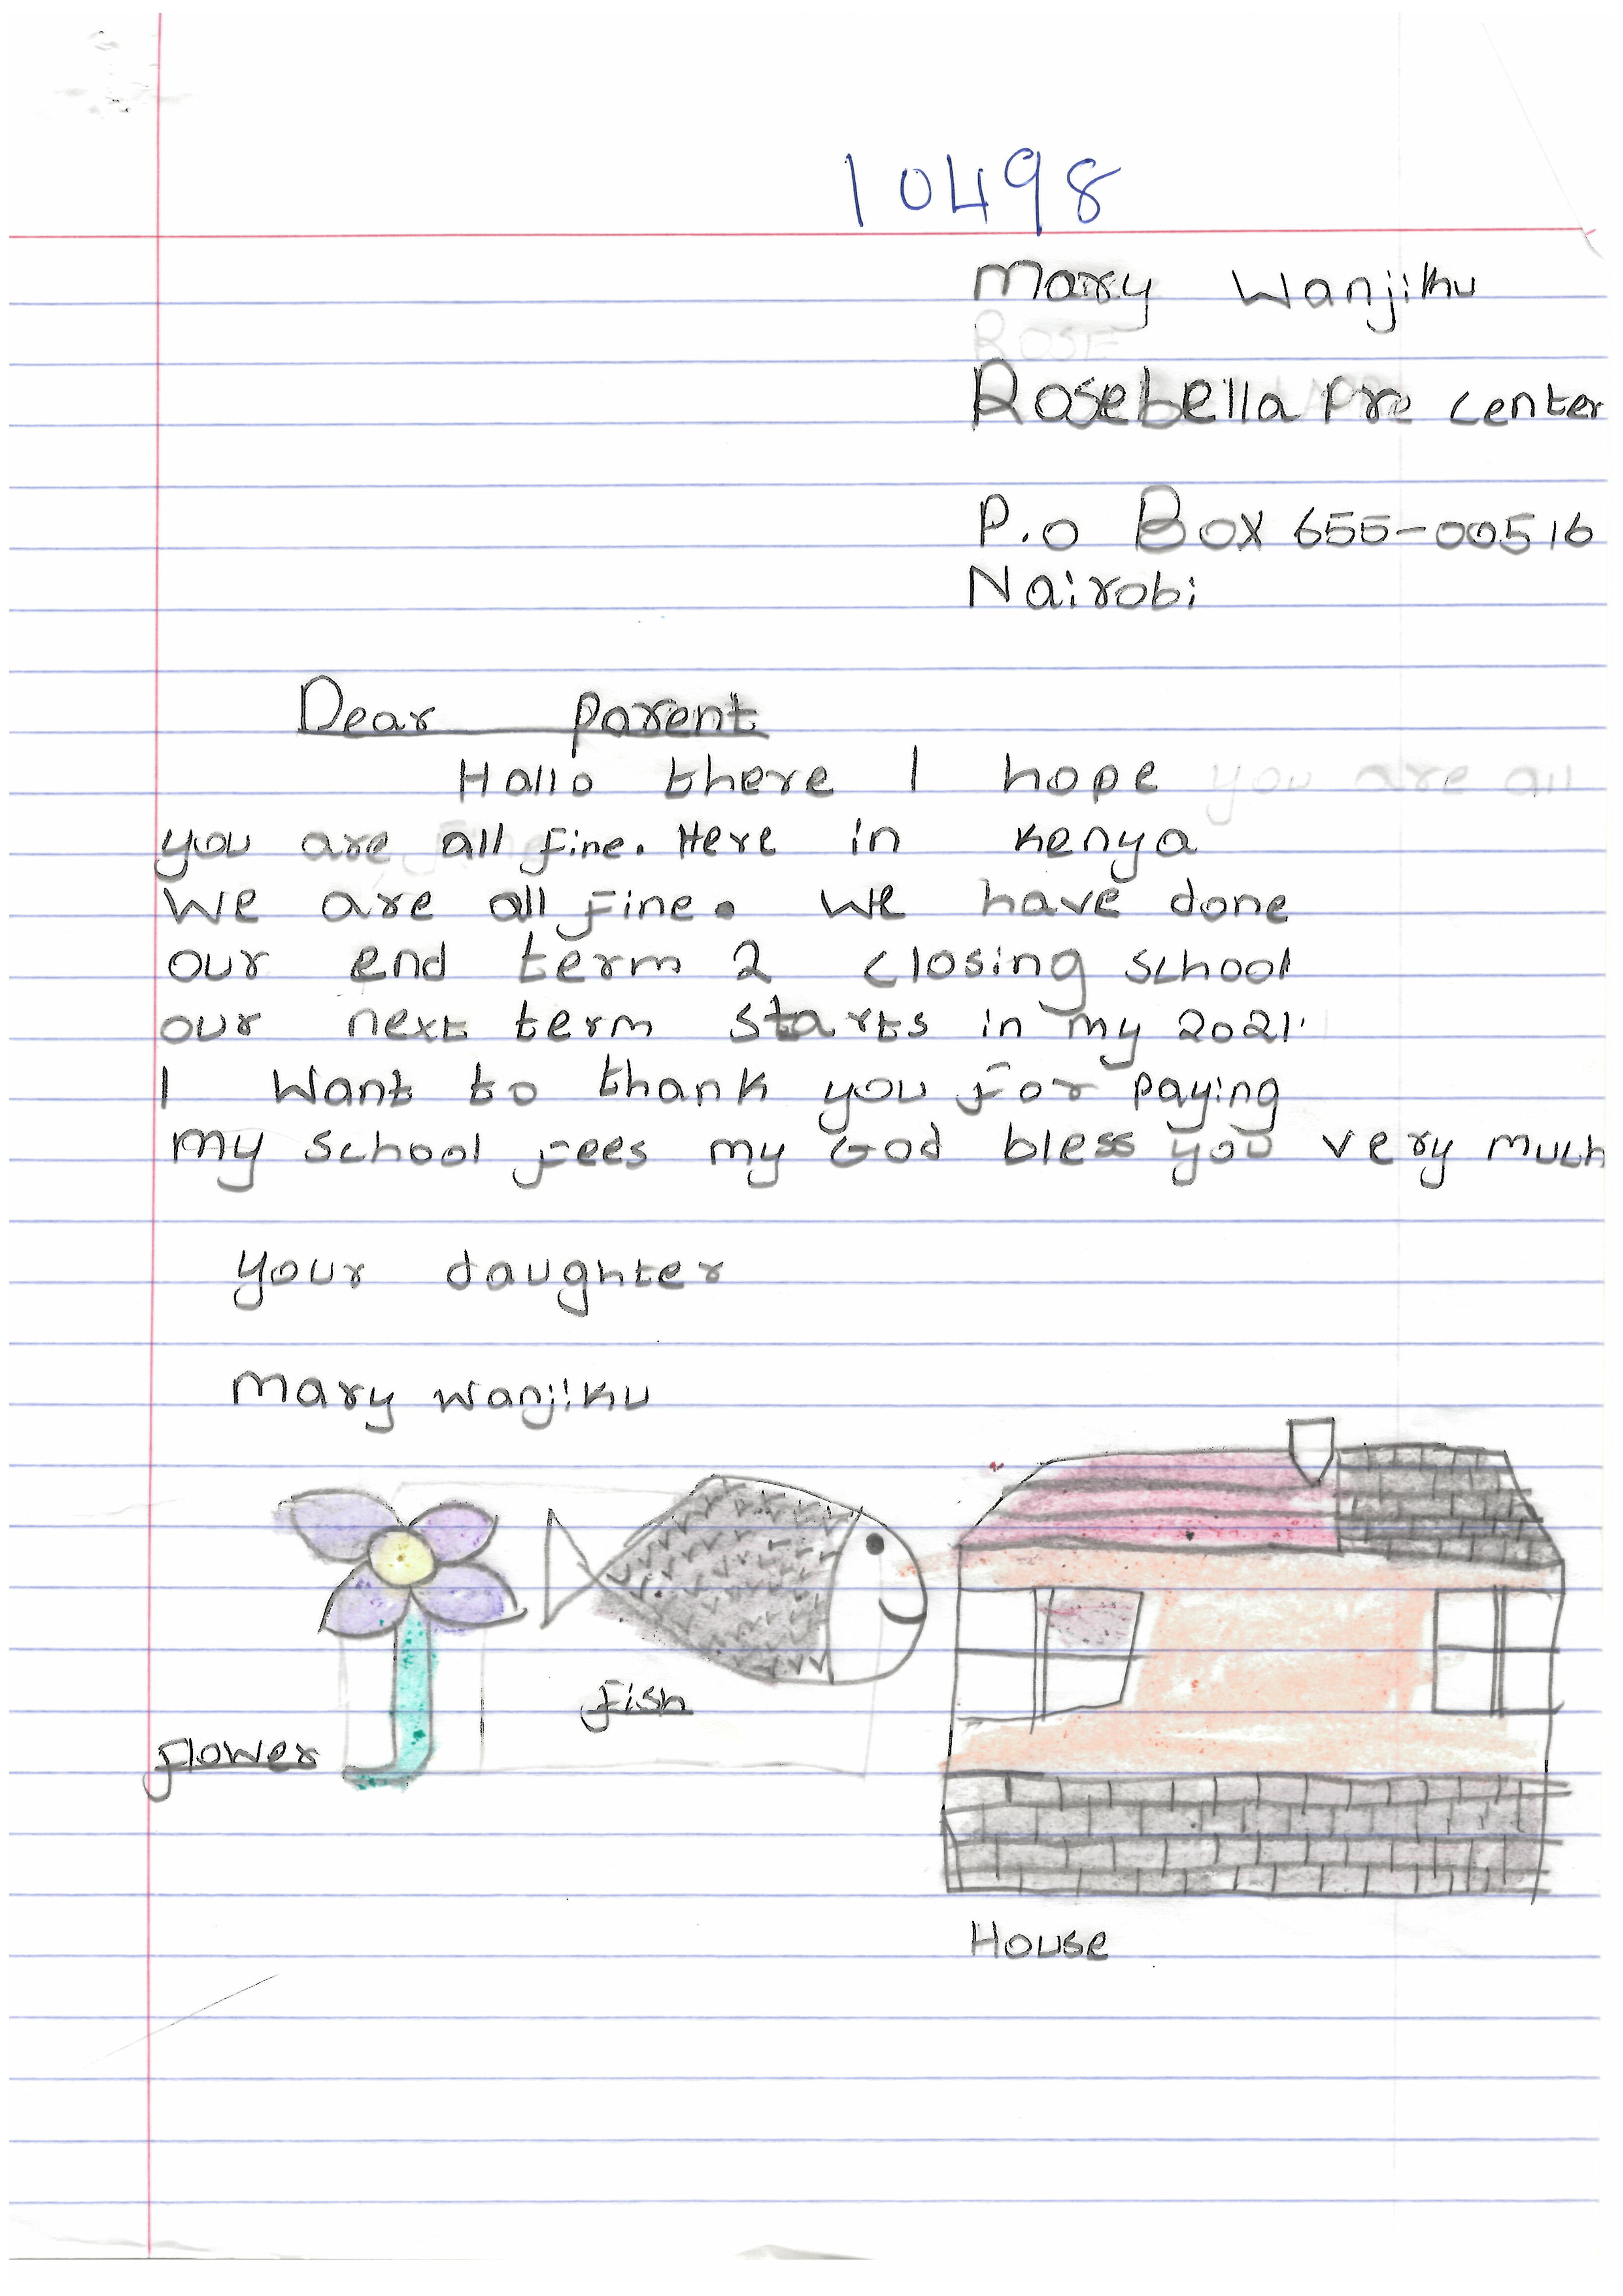 10498
Mary Wanjiku
Rosebella Pre center
P.o Box 655-00516
Nairobi
Dear parent
Hallo there I hope
you are all fine. Here in Kenya
We are all fine. We have done
our end term 2 closing school
our next term starts in my 2021.
I Want to thank you for paying
my school fees my God bless you very much
your daughter
Mary Wanjiku
fish
flower
House